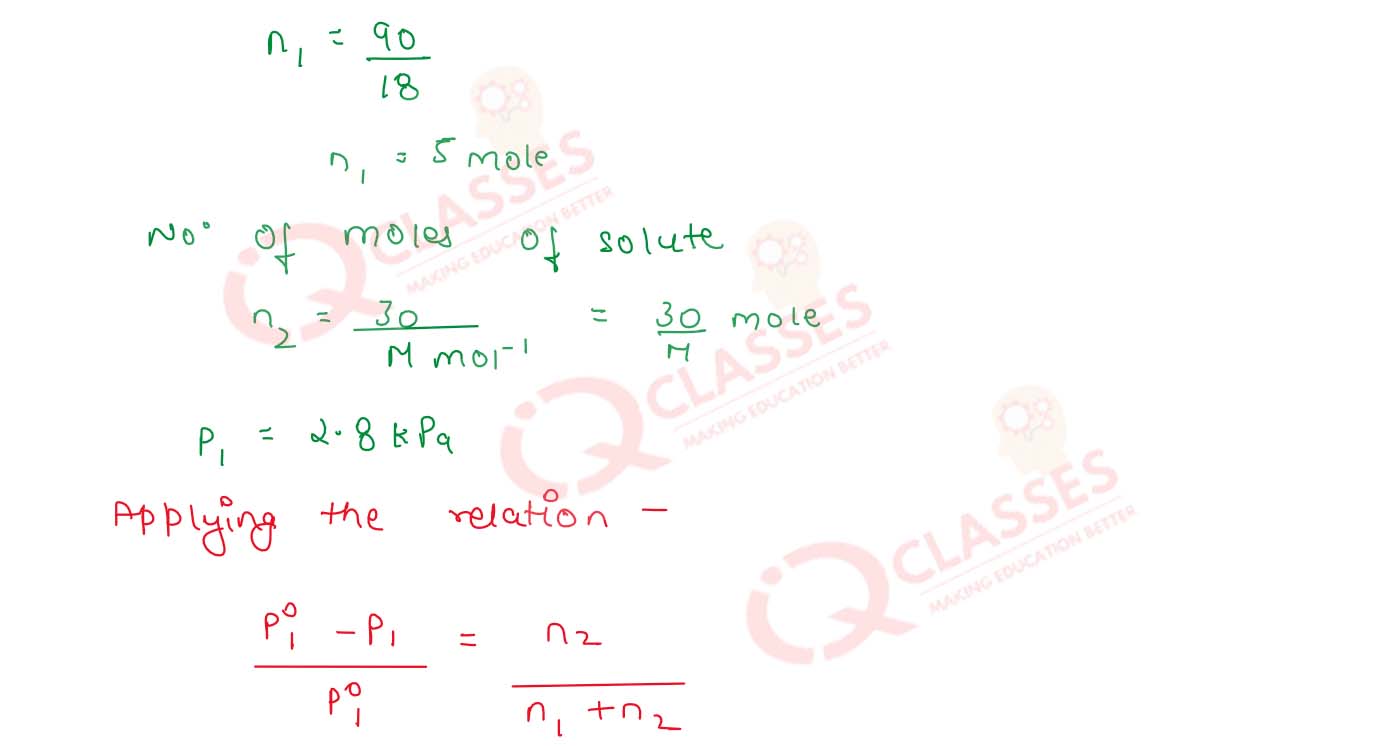 n₁ = 90/18
n₁ = 5 mole
No. of moles of solute
n₂ = 30/M mol⁻¹ = 30/M mole
P₁ = 2.8 kPa
Applying the relation –
P₁⁰ – P₁/P₁⁰ = n₂/n₁ + n₂
IQ CLASSES
MAKING EDUCATION BETTER
IQ CLASSES
MAKING EDUCATION BETTER
IQ CLASSES
MAKING EDUCATION BETTER